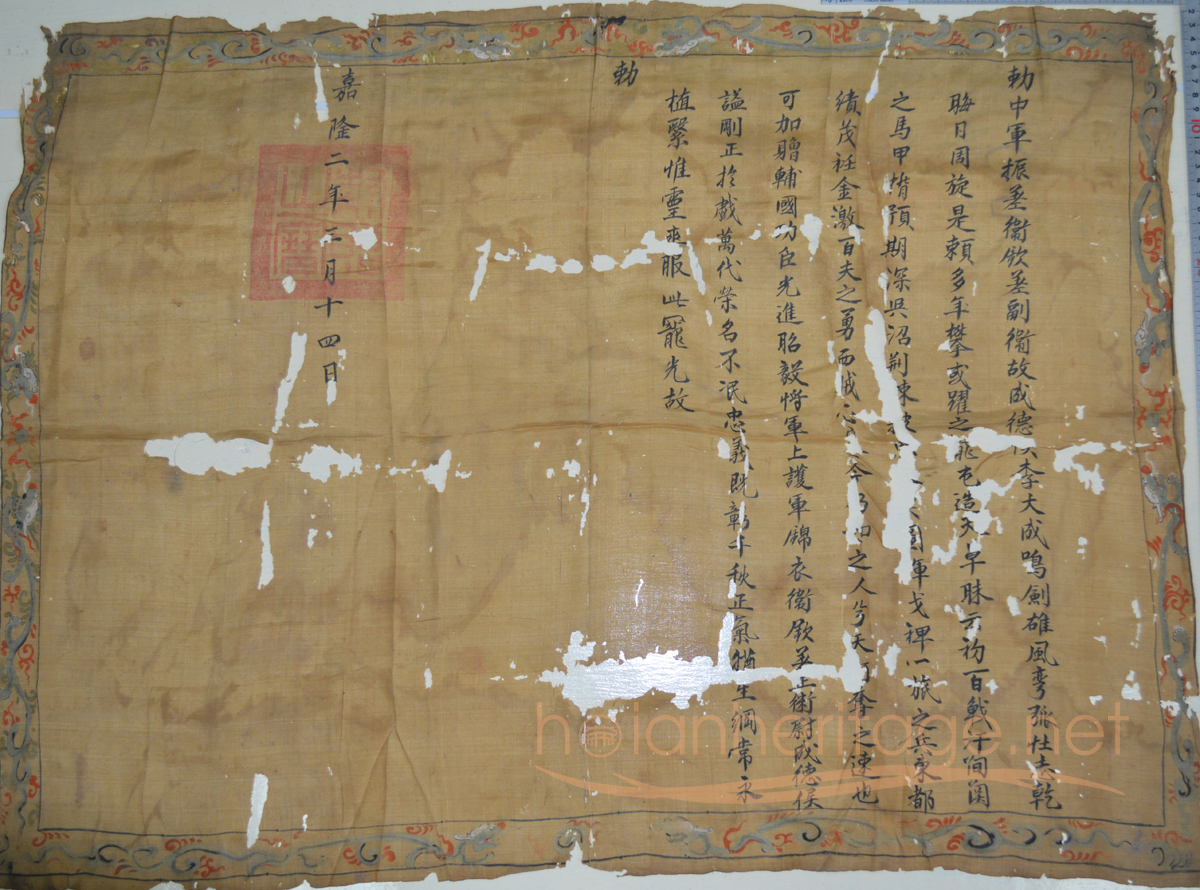 勅中軍振差衞欽差副衞故成德侯李大成鳴劍雄風彎弧壯志乾
晦日周旋是賴多年攀或躍之飛屯造天草昧云初百戰汗
之馬甲揹預期深吳沼荆軍戈裨一旅之兵東都
績茂衽金激百夫之勇而誠心今之人兮天奪之速也
可加贈輔國功臣光進昭毅將軍上護軍錦衣衞欽差正衞尉成德侯
謚剛正於戲萬代榮名不泯忠義既彰千秋正氣猶生綱常永
植緊惟靈爽服此寵光故
勅
嘉隆二年二月十四日
hoianheritage.net